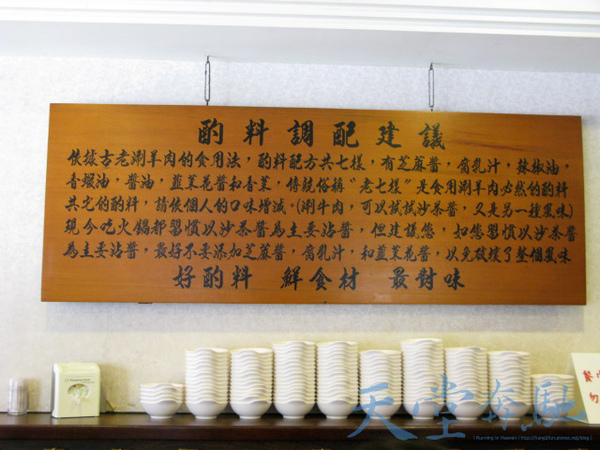 酌料調配建議
依據古老涮羊肉的食用法，酌料配方共七樣，有芝蔴醬，腐乳汁，辣椒油，
香蝦油，醬油，韮菜花醬和香菜，傳統俗稱“老七樣”是食用涮羊肉必然的酌料
其它的酌料，請依個人的口味增減。(涮牛肉，可以試試沙茶醬，又是另一種風味)
現今吃火鍋都習慣以沙茶醬為主要沾醬，但建議您，如您習慣以沙茶醬
為主要沾醬，最好不要添加芝蔴醬，腐乳汁，和韮菜花醬，以免破壞了整個風味
好酌料 鮮食材 最對味
天堂奔馳